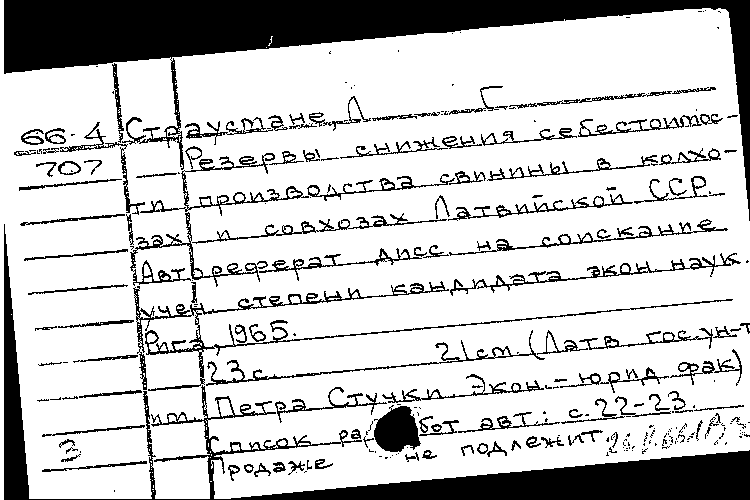 66-4 Страустане, Л Г
707 Резервы снижения себестоимос-
ти производства свинины в колхо-
зах и совхозах Латвийской ССР.
Автореферат дисс. на соискание
учен. степени кандидата экон наук.
Рига, 1965.
23с. 21см (Латв гос. ун-т
им. Петра Стучки. Экон.-юрид фак)
Список работ авт.: с. 22-23.
3 Продаже не подлежит